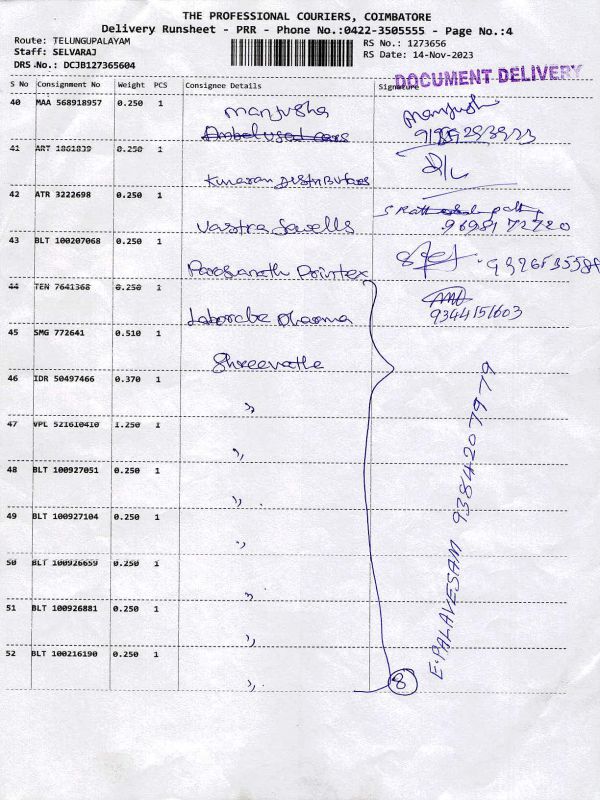 THE PROFESSIONAL COURIERS, COIMBATORE
Delivery Runsheet - PRR - Phone No.:0422-3505555 - Page No.:4
Route: TELUNGUPALAYAM
Staff: SELVARAJ
DRS No.: DCJB127365604
RS No.: 1273656
RS Date: 14-Nov-2023
DOCUMENT DELIVERY
S No Consignment No Weight PCS Consignee Details Signature
40 MAA 568918957 0.250 1 Manjusha
41 ART 1861839 0.250 1 Kumaran Distributors
42 ATR 3222698 0.250 1 Vastra Jewells 96981 72720
43 BLT 100207068 0.250 1 Parasanath Printex
44 TEN 7641368 0.250 1 Laborate Pharma 9344151603
45 SMG 772641 0.510 1 Shreevathe
46 IDR 50497466 0.370 1 ,,
47 VPL 521610410 1.250 1 ,,
48 BLT 100927051 0.250 1 ,,
49 BLT 100927104 0.250 1 ,,
50 BLT 100926659 0.250 1 ,,
51 BLT 100926881 0.250 1 ,,
52 BLT 100216190 0.250 1 ,,
8
E. PALAVESAM 9384207979